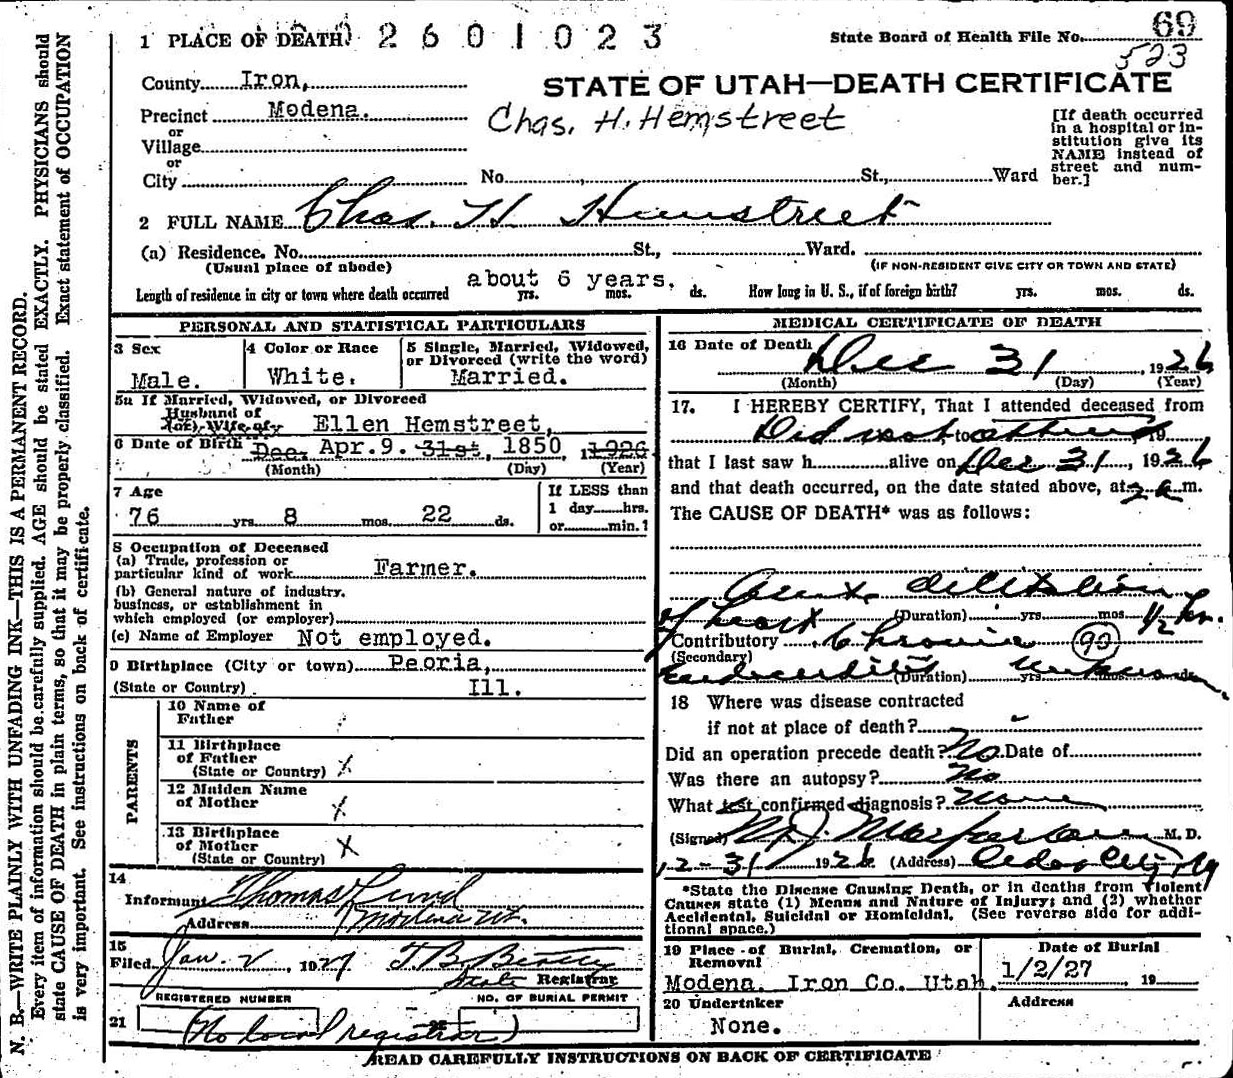 1 PLACE OF DEATH 2601023 State Board of Health File No. 69
523
County Iron,
STATE OF UTAH—DEATH CERTIFICATE
Precinct Modena.
Chas. H. Hemstreet
or
Village
or
City No. St., Ward
[If death occurred
in a hospital or in-
stitution give its
NAME instead of
street and num-
ber.]
2 FULL NAME Chas. H Hemstreet
(a) Residence. No. St., Ward.
(Usual place of abode) (IF NON-RESIDENT GIVE CITY OR TOWN AND STATE)
Length of residence in city or town where death occurred about 6 years. yrs. mos. ds. How long in U. S., if of foreign birth? yrs. mos. ds.
PERSONAL AND STATISTICAL PARTICULARS
3 Sex
Male.
4 Color or Race
White.
5 Single, Married, Widowed,
or Divorced (write the word)
Married.
5a If Married, Widowed, or Divorced
Husband of
(or) Wife of Ellen Hemstreet,
6 Date of Birth Dec. Apr. 9. 31st, 1850 1926
(Month) (Day) (Year)
7 Age
76 yrs. 8 mos. 22 ds.
If LESS than
1 day hrs.
or min.?
8 Occupation of Deceased
(a) Trade, profession or
particular kind of work Farmer.
(b) General nature of industry.
business, or establishment in
which employed (or employer)
(c) Name of Employer Not employed.
9 Birthplace (City or town) Peoria,
(State or Country) Ill.
PARENTS
10 Name of
Father
11 Birthplace
of Father
(State or Country) X
12 Maiden Name
of Mother X
13 Birthplace
of Mother
(State or Country) X
14
Informant Thomas Lund
Address Modena Ut.
15
Filed Jan. 2, 1927
State Registrar
REGISTERED NUMBER NO. OF BURIAL PERMIT
21 (No local registrar)
MEDICAL CERTIFICATE OF DEATH
16 Date of Death Dec 31, 1926
(Month) (Day) (Year)
17. I HEREBY CERTIFY, That I attended deceased from
Did not to attend 19
that I last saw h alive on Dec 31, 1926
and that death occurred, on the date stated above, at 2 a m.
The CAUSE OF DEATH* was as follows:
Acute dilitation
of heart (Duration) yrs. mos. 1/2 hr.
Contributory Chronic 90
(Secondary)
endocarditis (Duration) yrs. unknown
18 Where was disease contracted
if not at place of death?
Did an operation precede death? No Date of
Was there an autopsy? No
What test confirmed diagnosis? None
(Signed) M. J. Macfarlane M. D.
12-31 1926 (Address) Cedar City, Ut
*State the Disease Causing Death, or in deaths from Violent
Causes state (1) Means and Nature of Injury; and (2) whether
Accidental, Suicidal or Homicidal. (See reverse side for addi-
tional space.)
19 Place of Burial, Cremation, or
Removal
Modena. Iron Co. Utah.
Date of Burial
1/2/27 19
20 Undertaker
None.
Address
READ CAREFULLY INSTRUCTIONS ON BACK OF CERTIFICATE
N. B.—WRITE PLAINLY WITH UNFADING INK—THIS IS A PERMANENT RECORD.
Every item of information should be carefully supplied. AGE should be stated EXACTLY. PHYSICIANS should
state CAUSE OF DEATH in plain terms, so that it may be properly classified. Exact statement of OCCUPATION
is very important. See instructions on back of certificate.